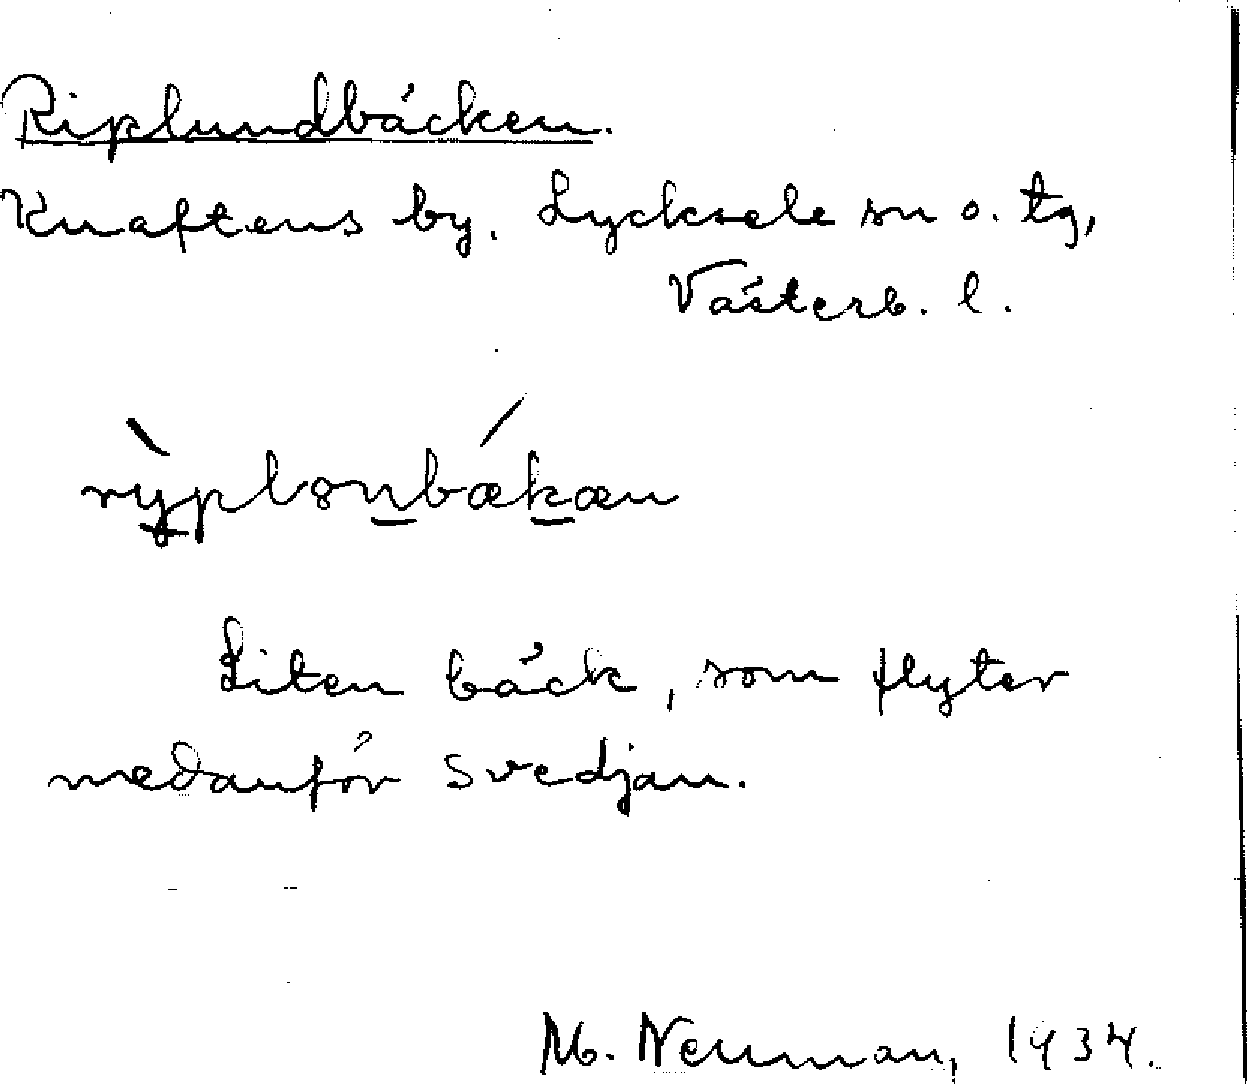 Riplundbäcken.
Knaftens by. Lycksele sn o. tg,
Västerb. l.
Liten bäck, som flyter
nedanför Svedjan.
M. Neuman, 1934.